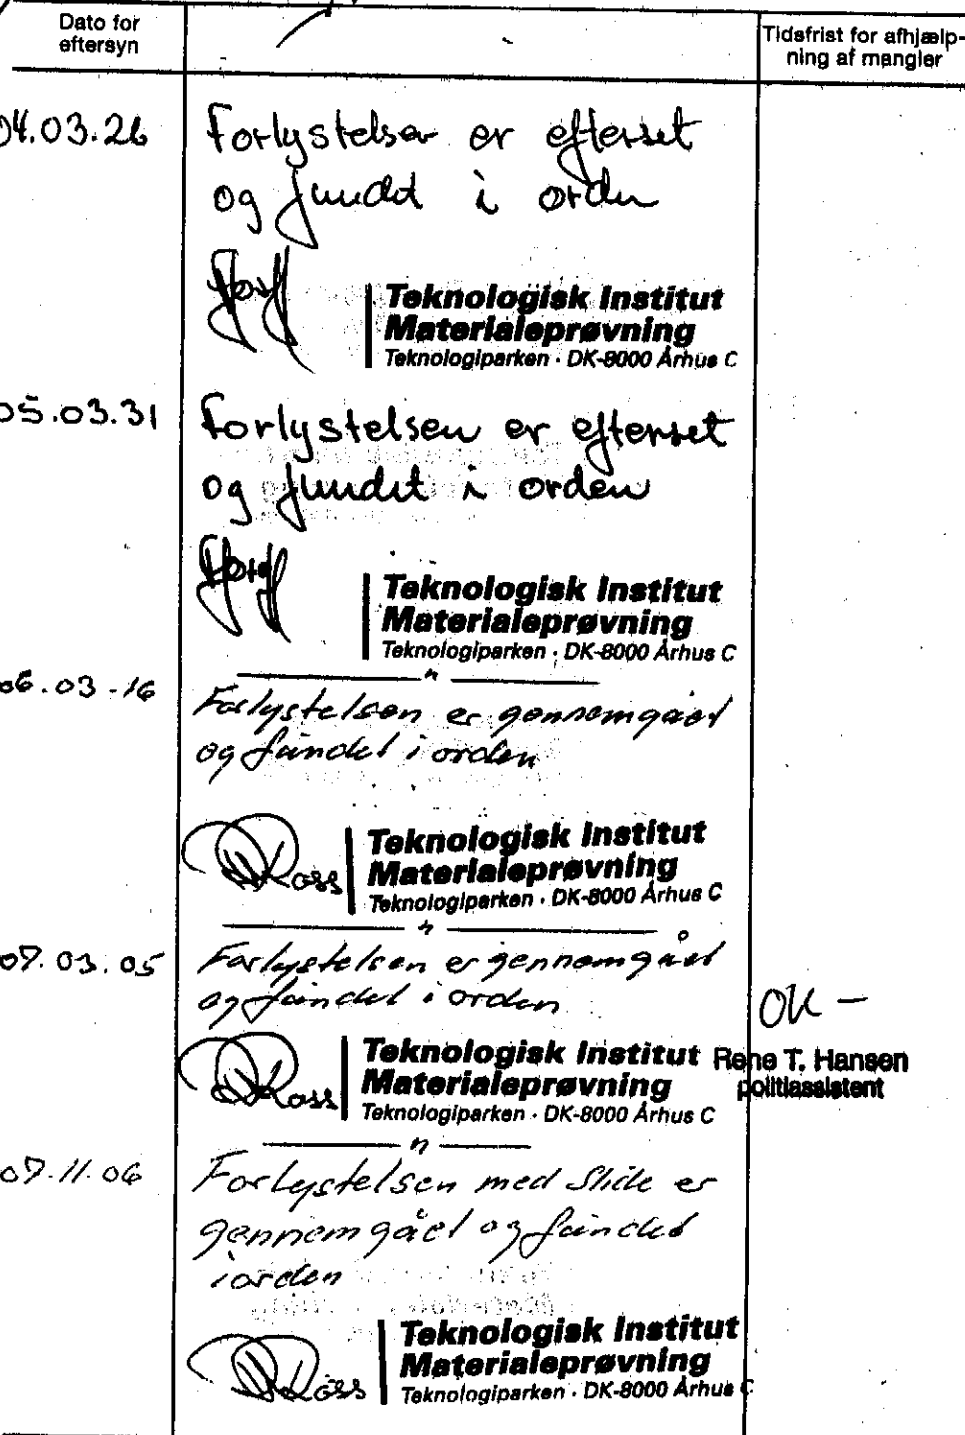 Dato for
eftersyn
Tidsfrist for afhjælp-
ning af mangler
04.03.26
Forlystelsen er efterset
og fundet i orden
Teknologisk Institut
Materialeprøvning
Teknologiparken · DK-8000 Århus C
05.03.31
Forlystelsen er efterset
og fundet i orden
Teknologisk Institut
Materialeprøvning
Teknologiparken · DK-8000 Århus C
06.03-16
Forlystelsen er gennemgået
og fundet i orden
Ross
Teknologisk Institut
Materialeprøvning
Teknologiparken · DK-8000 Århus C
07.03.05
Forlystelsen er gennemgået
og fundet i orden
OK -
Ross
Teknologisk Institut
Materialeprøvning
Teknologiparken · DK-8000 Århus C
Rene T. Hansen
politiassistent
07.11.06
Forlystelsen med Slide er
gennemgået og fundet
i orden
Ross
Teknologisk Institut
Materialeprøvning
Teknologiparken · DK-8000 Århus C